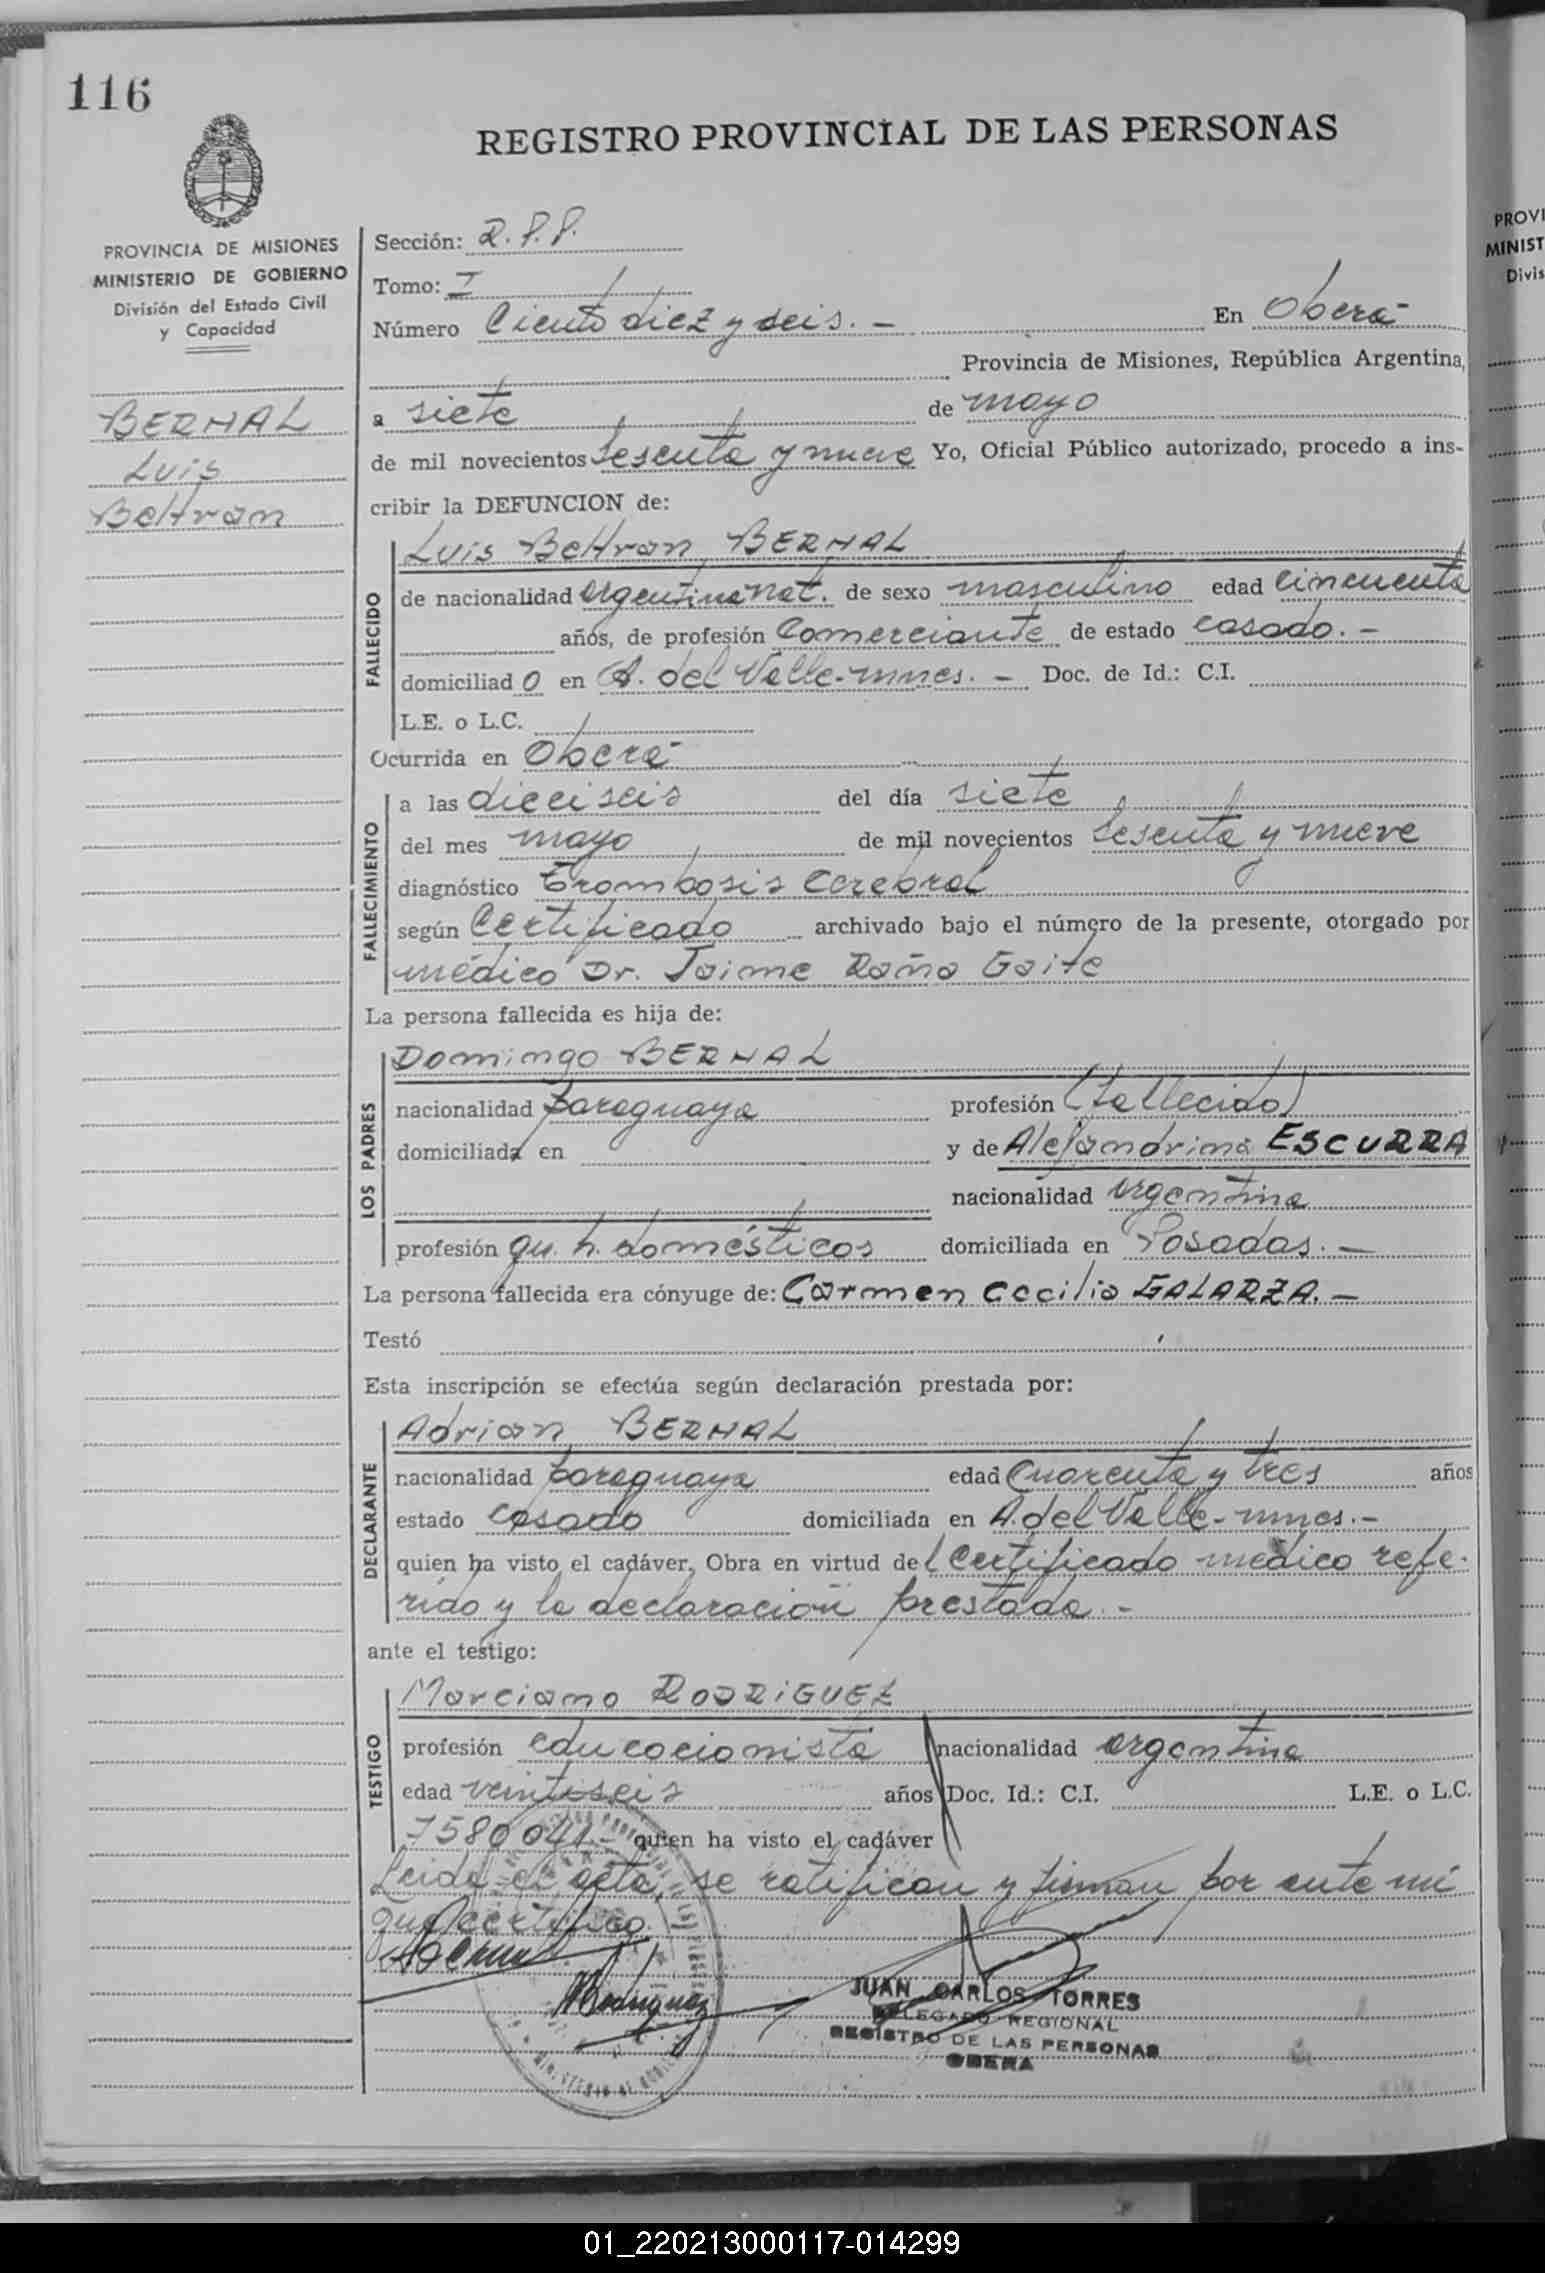 116
REGISTRO PROVINCIAL DE LAS PERSONAS
PROVINCIA DE MISIONES
MINISTERIO DE GOBIERNO
División del Estado Civil
y Capacidad
BERNAL
Luis
Beltran
Sección: R.P.P.
Tomo: I
Número Ciento diez y seis. — En Oberá
Provincia de Misiones, República Argentina,
a siete de mayo
de mil novecientos sesenta y nueve Yo, Oficial Público autorizado, procedo a ins-
cribir la DEFUNCION de:
FALLECIDO
Luis Beltran BERNAL
de nacionalidad argentina nat. de sexo masculino edad cincuenta
años, de profesión Comerciante de estado casado. —
domiciliad o en A. del Valle-mnes. — Doc. de Id.: C.I.
L.E. o L.C.
Ocurrida en Oberá
FALLECIMIENTO
a las dieciseis del día siete
del mes mayo de mil novecientos sesenta y nueve
diagnóstico Trombosis Cerebral
según Certificado archivado bajo el número de la presente, otorgado por
médico Dr. Jaime Raña Gaite
La persona fallecida es hija de:
LOS PADRES
Domingo BERNAL
nacionalidad paraguaya profesión (fallecido)
domiciliada en y de Alejandrina ESCURRA
nacionalidad argentina
profesión qu. h. domésticos domiciliada en Posadas. —
La persona fallecida era cónyuge de: Carmen Cecilia GALARZA. —
Testó
Esta inscripción se efectúa según declaración prestada por:
DECLARANTE
Adrian BERNAL
nacionalidad paraguaya edad cuarenta y tres años
estado casado domiciliada en A. del Valle-mnes. —
quien ha visto el cadáver, Obra en virtud del Certificado médico refe-
rido y la declaración prestada. -
ante el testigo:
TESTIGO
Marciano RODRIGUEZ
profesión educacionista nacionalidad argentina
edad veintiseis años Doc. Id.: C.I. L.E. o L.C.
7580041.- quien ha visto el cadáver
Leída el acta, se ratifican y firman por ante mí
que certifico.
ABernal
MRodriguez
JUAN CARLOS TORRES
DELEGADO REGIONAL
REGISTRO DE LAS PERSONAS
OBERA
PROVI
MINIST
Divis
01_220213000117-014299